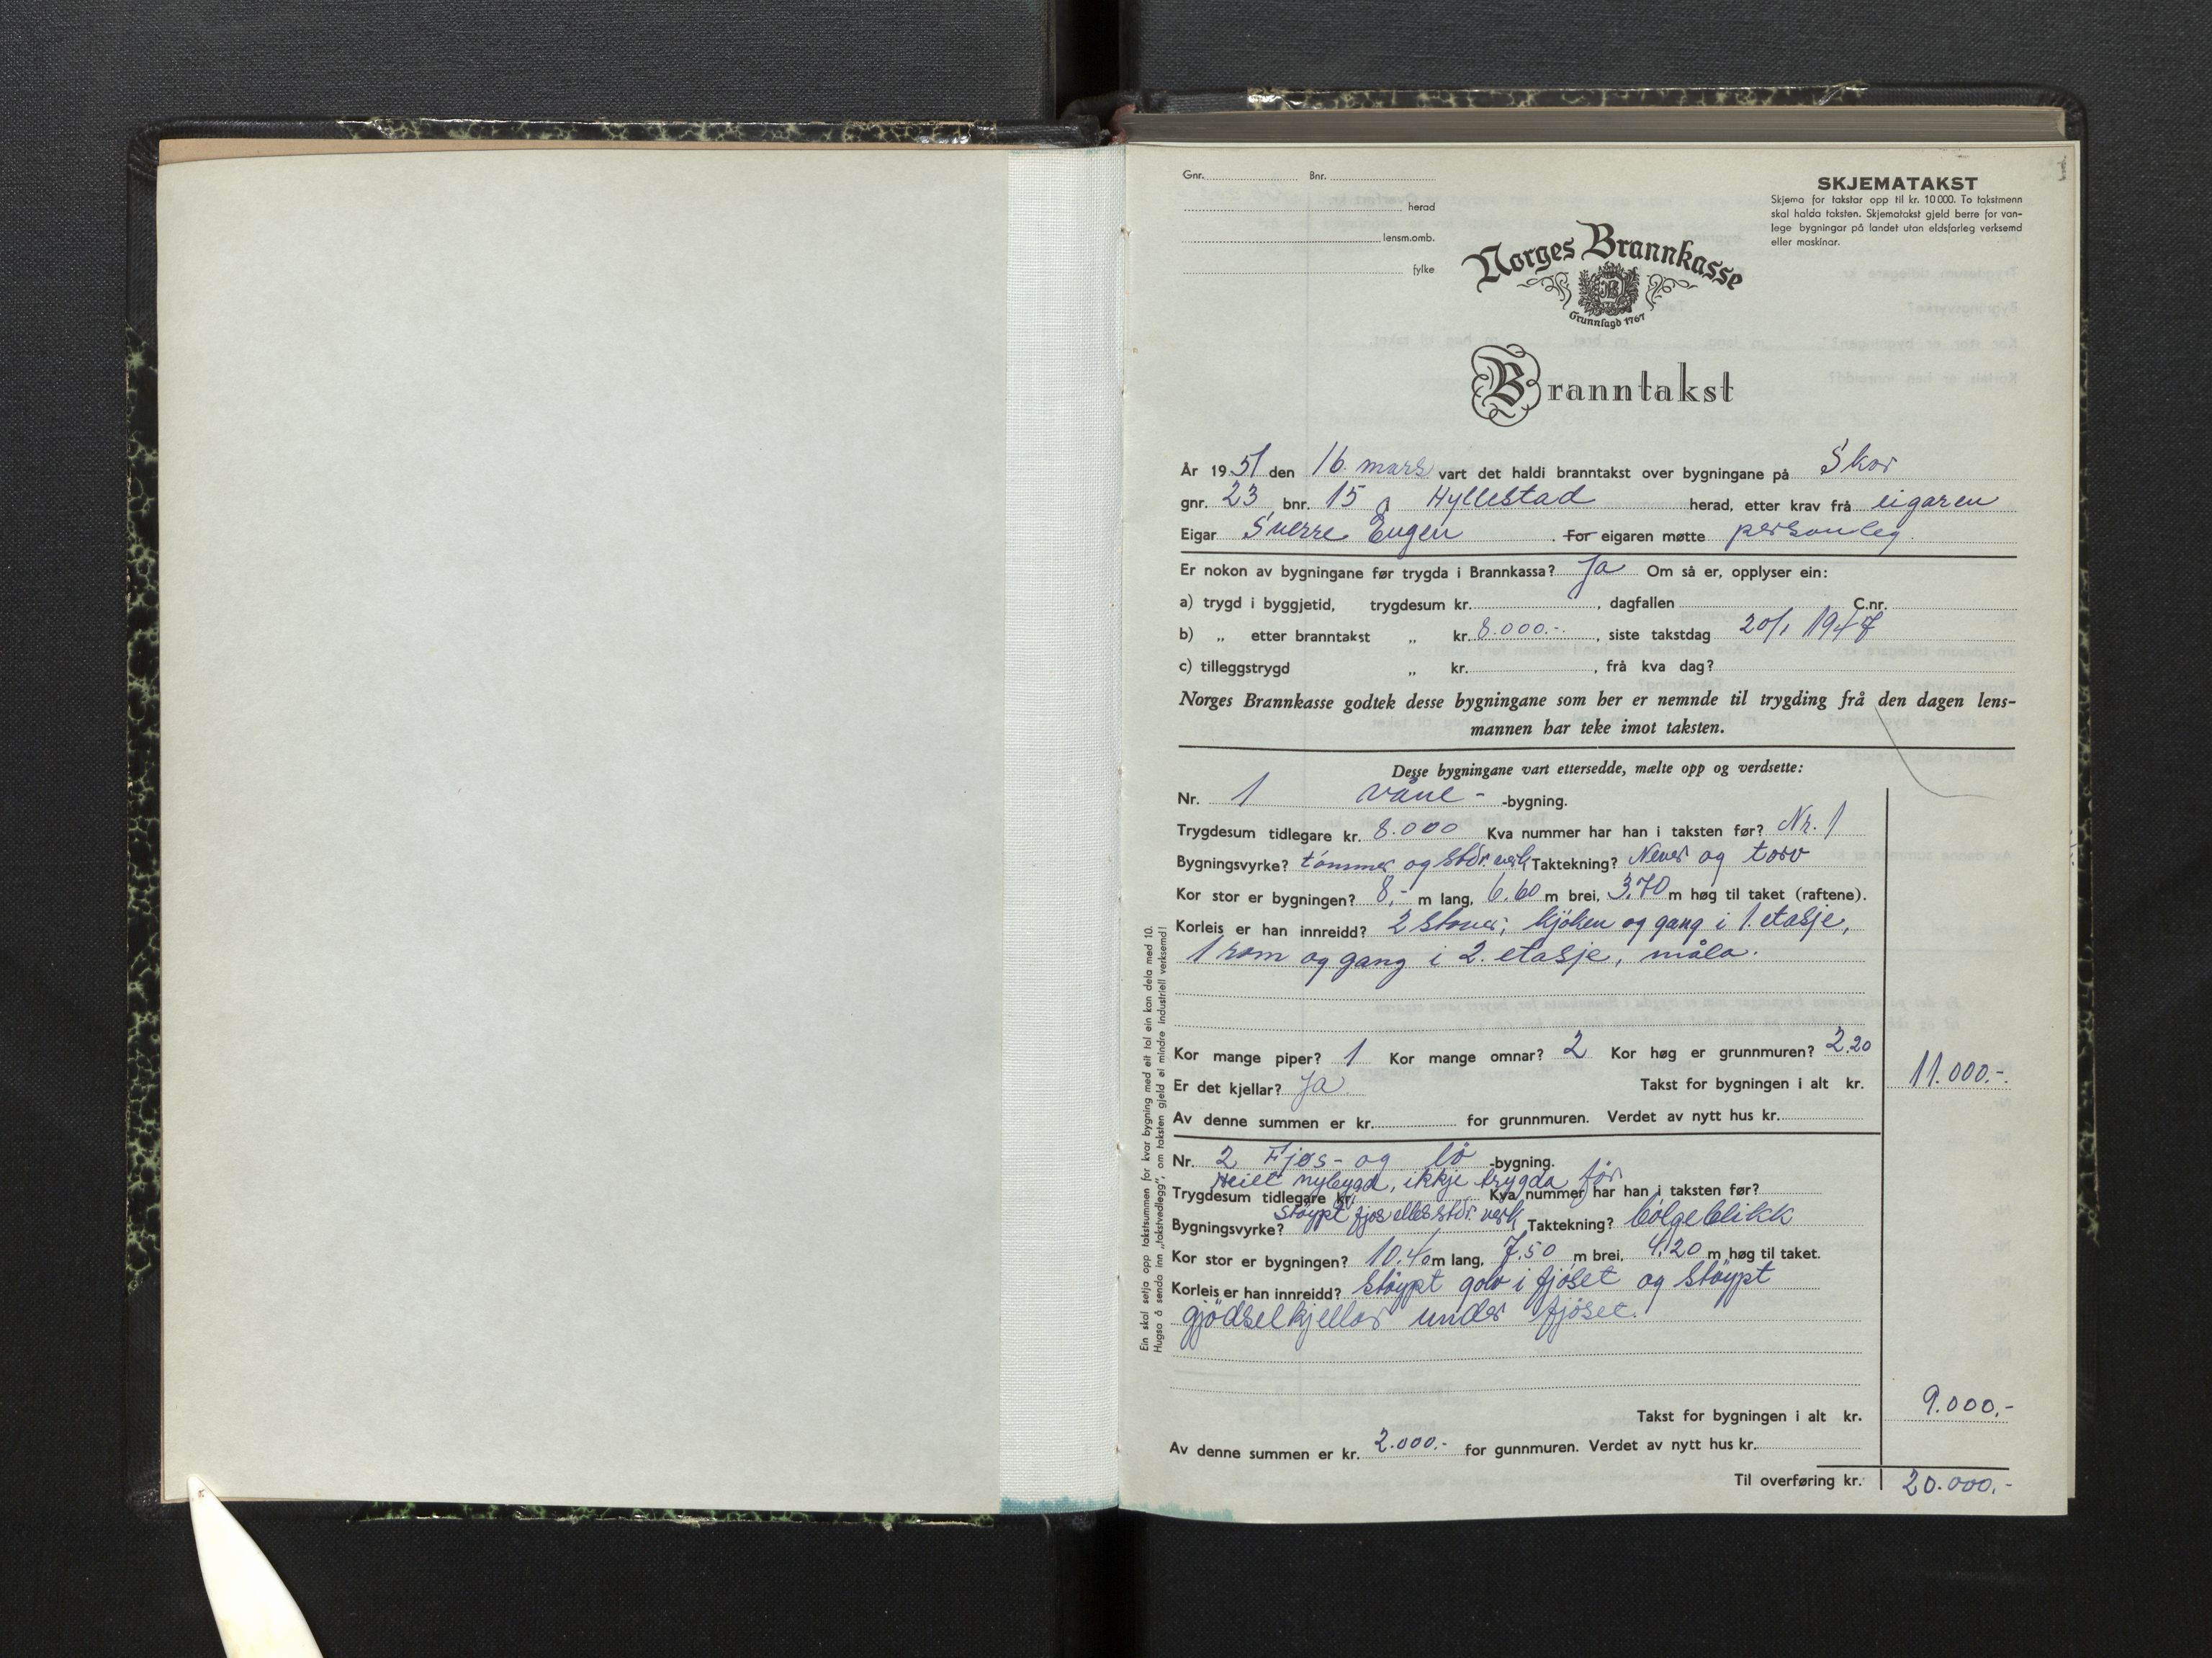 Gnr. Bnr.
herad
lensm.omb.
fylke
SKJEMATAKST
Skjema for takstar opp til kr. 10 000. To takstmenn
skal halda taksten. Skjematakst gjeld berre for van-
lege bygningar på landet utan eldsfarleg verksemd
eller maskinar.
Norges Brannkasse
Grunnlagd 1767
Branntakst
År 1951 den 16. mars vart det haldi branntakst over bygningane på Skor
gnr. 23 bnr. 15 i Hyllestad herad, etter krav frå eigaren
Eigar Sverre Eugen . For eigaren møtte personleg.
Er nokon av bygningane før trygda i Brannkassa? Ja Om så er, opplyser ein:
a) trygd i byggjetid, trygdesum kr. , dagfallen C.nr.
b) „ etter branntakst „ kr. 8.000.-. , siste takstdag 20/1 1947
c) tilleggstrygd „ kr. , frå kva dag?
Norges Brannkasse godtek desse bygningane som her er nemnde til trygding frå den dagen lens-
mannen har teke imot taksten.
Desse bygningane vart ettersedde, mælte opp og verdsette:
Nr. 1 våne- -bygning.
Trygdesum tidlegare kr. 8.000 Kva nummer har han i taksten før? Nr. 1
Bygningsvyrke? tömmer og stdr. verk Taktekning? Never og torv
Kor stor er bygningen? 8,- m lang, 6.60 m brei, 3,70 m høg til taket (raftene).
Korleis er han innreidd? 2 stover, kjöken og gang i 1. etasje,
1 rom og gang i 2. etasje, måla.
Kor mange piper? 1 Kor mange omnar? 2 Kor høg er grunnmuren? 2.20
Er det kjellar? Ja Takst for bygningen i alt kr. 11.000.-.
Av denne summen er kr. for grunnmuren. Verdet av nytt hus kr.
Nr. 2 Fjøs- og lö -bygning.
Heilt nybygd, ikkje trygda før.
Trygdesum tidlegare kr. Kva nummer har han i taksten før?
Bygningsvyrke? Støypt fjøs elles stdr. verk Taktekning? bölgeblikk
Kor stor er bygningen? 10.40 m lang, 7.50 m brei, 4.20 m høg til taket.
Korleis er han innreidd? Støypt golv i fjøset og støypt
gjödselkjellar under fjöset.
Takst for bygningen i alt kr. 9.000,-
Av denne summen er kr. 2.000.- for gunnmuren. Verdet av nytt hus kr.
Til overføring kr. 20.000.-
Ein skal setja opp takstsummen for kvar bygning med eit tal ein kan dela med 10.
Hugsa å senda inn „takstvedlegg”, om taksten gjeld ei mindre industriell verksemd!